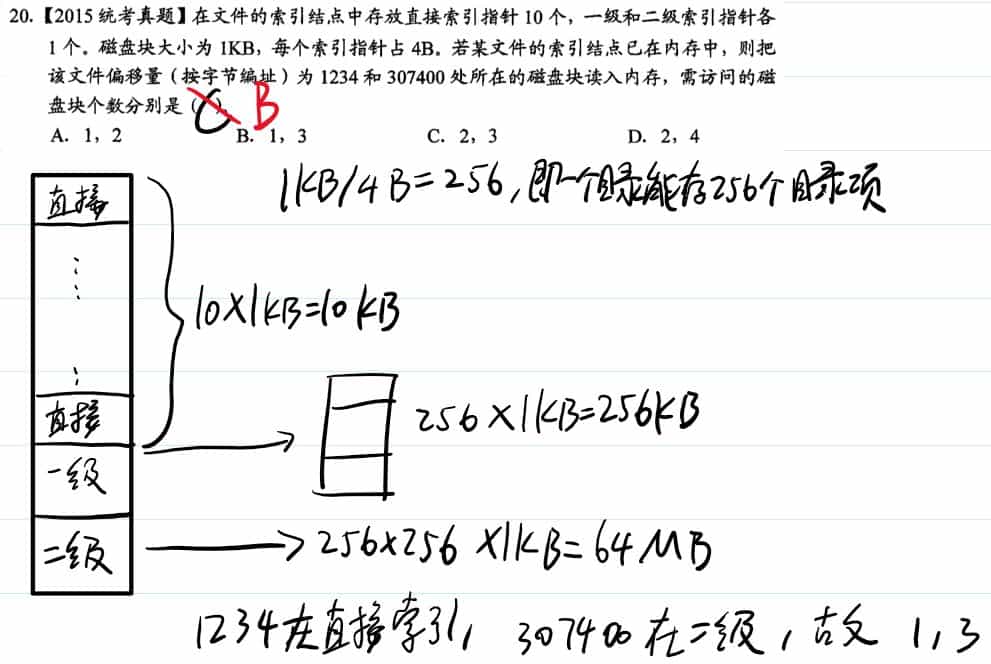 20.【2015 统考真题】在文件的索引结点中存放直接索引指针 10 个，一级和二级索引指针各
1 个。磁盘块大小为 1KB，每个索引指针占 4B。若某文件的索引结点已在内存中，则把
该文件偏移量（按字节编址）为 1234 和 307400 处所在的磁盘块读入内存，需访问的磁
盘块个数分别是（ ）。 C B
A. 1，2 B. 1，3 C. 2，3 D. 2，4
直接 1KB/4B=256，即一个目录能存256个目录项
10×1KB=10KB
直接 256×1KB=256KB
一级
二级 256×256×1KB=64MB
1234在直接索引，307400在二级，故 1，3